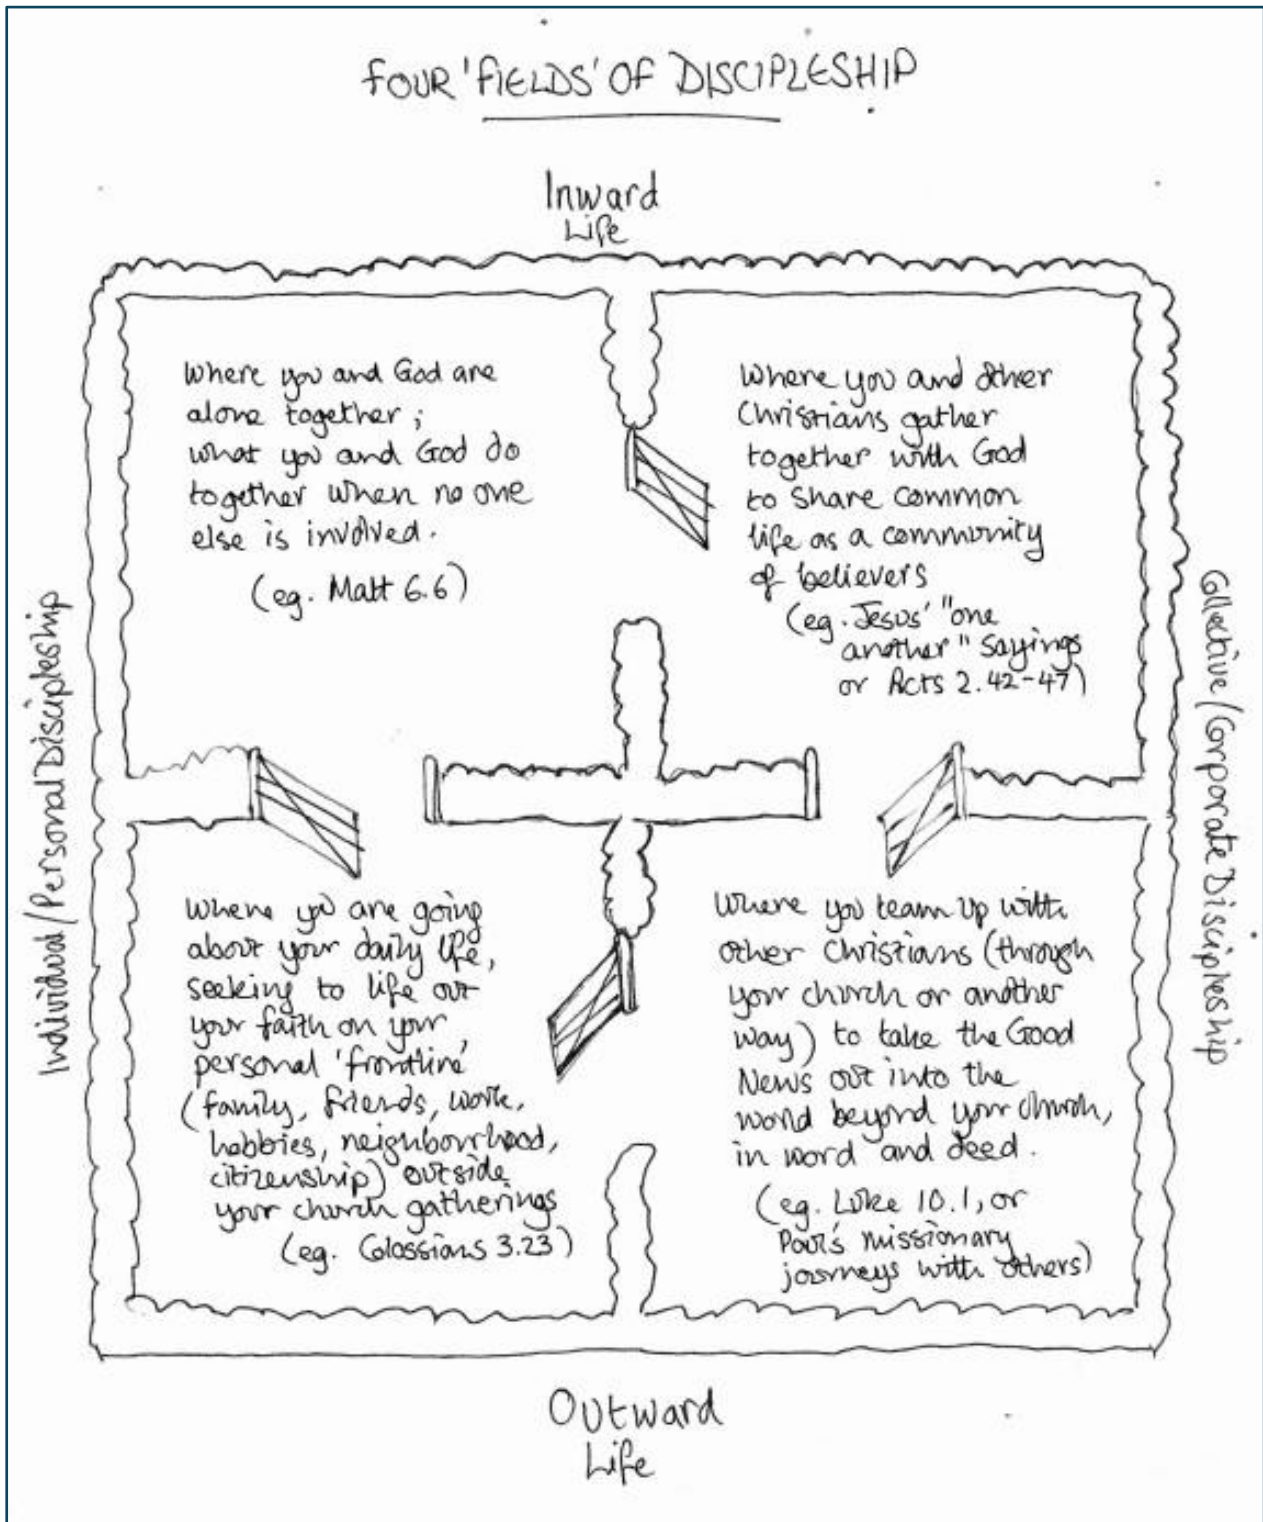 FOUR 'FIELDS' OF DISCIPLESHIP
Inward
Life
Where you and God are
alone together;
what you and God do
together when no one
else is involved.
(eg. Matt 6.6)
Where you and other
Christians gather
together with God
to share common
life as a community
of believers
(eg. Jesus' "one
another" sayings
or Acts 2.42-47)
Individual/Personal Discipleship
Collective/Corporate Discipleship
Where you are going
about your daily life,
seeking to life out
your faith on your
personal 'frontline'
(family, friends, work,
hobbies, neighbourhood,
citizenship) outside
your church gatherings
(eg. Colossians 3.23)
Where you team up with
other Christians (through
your church or another
way) to take the Good
News out into the
world beyond your church,
in word and deed.
(eg. Luke 10.1, or
Paul's missionary
journeys with others)
Outward
Life